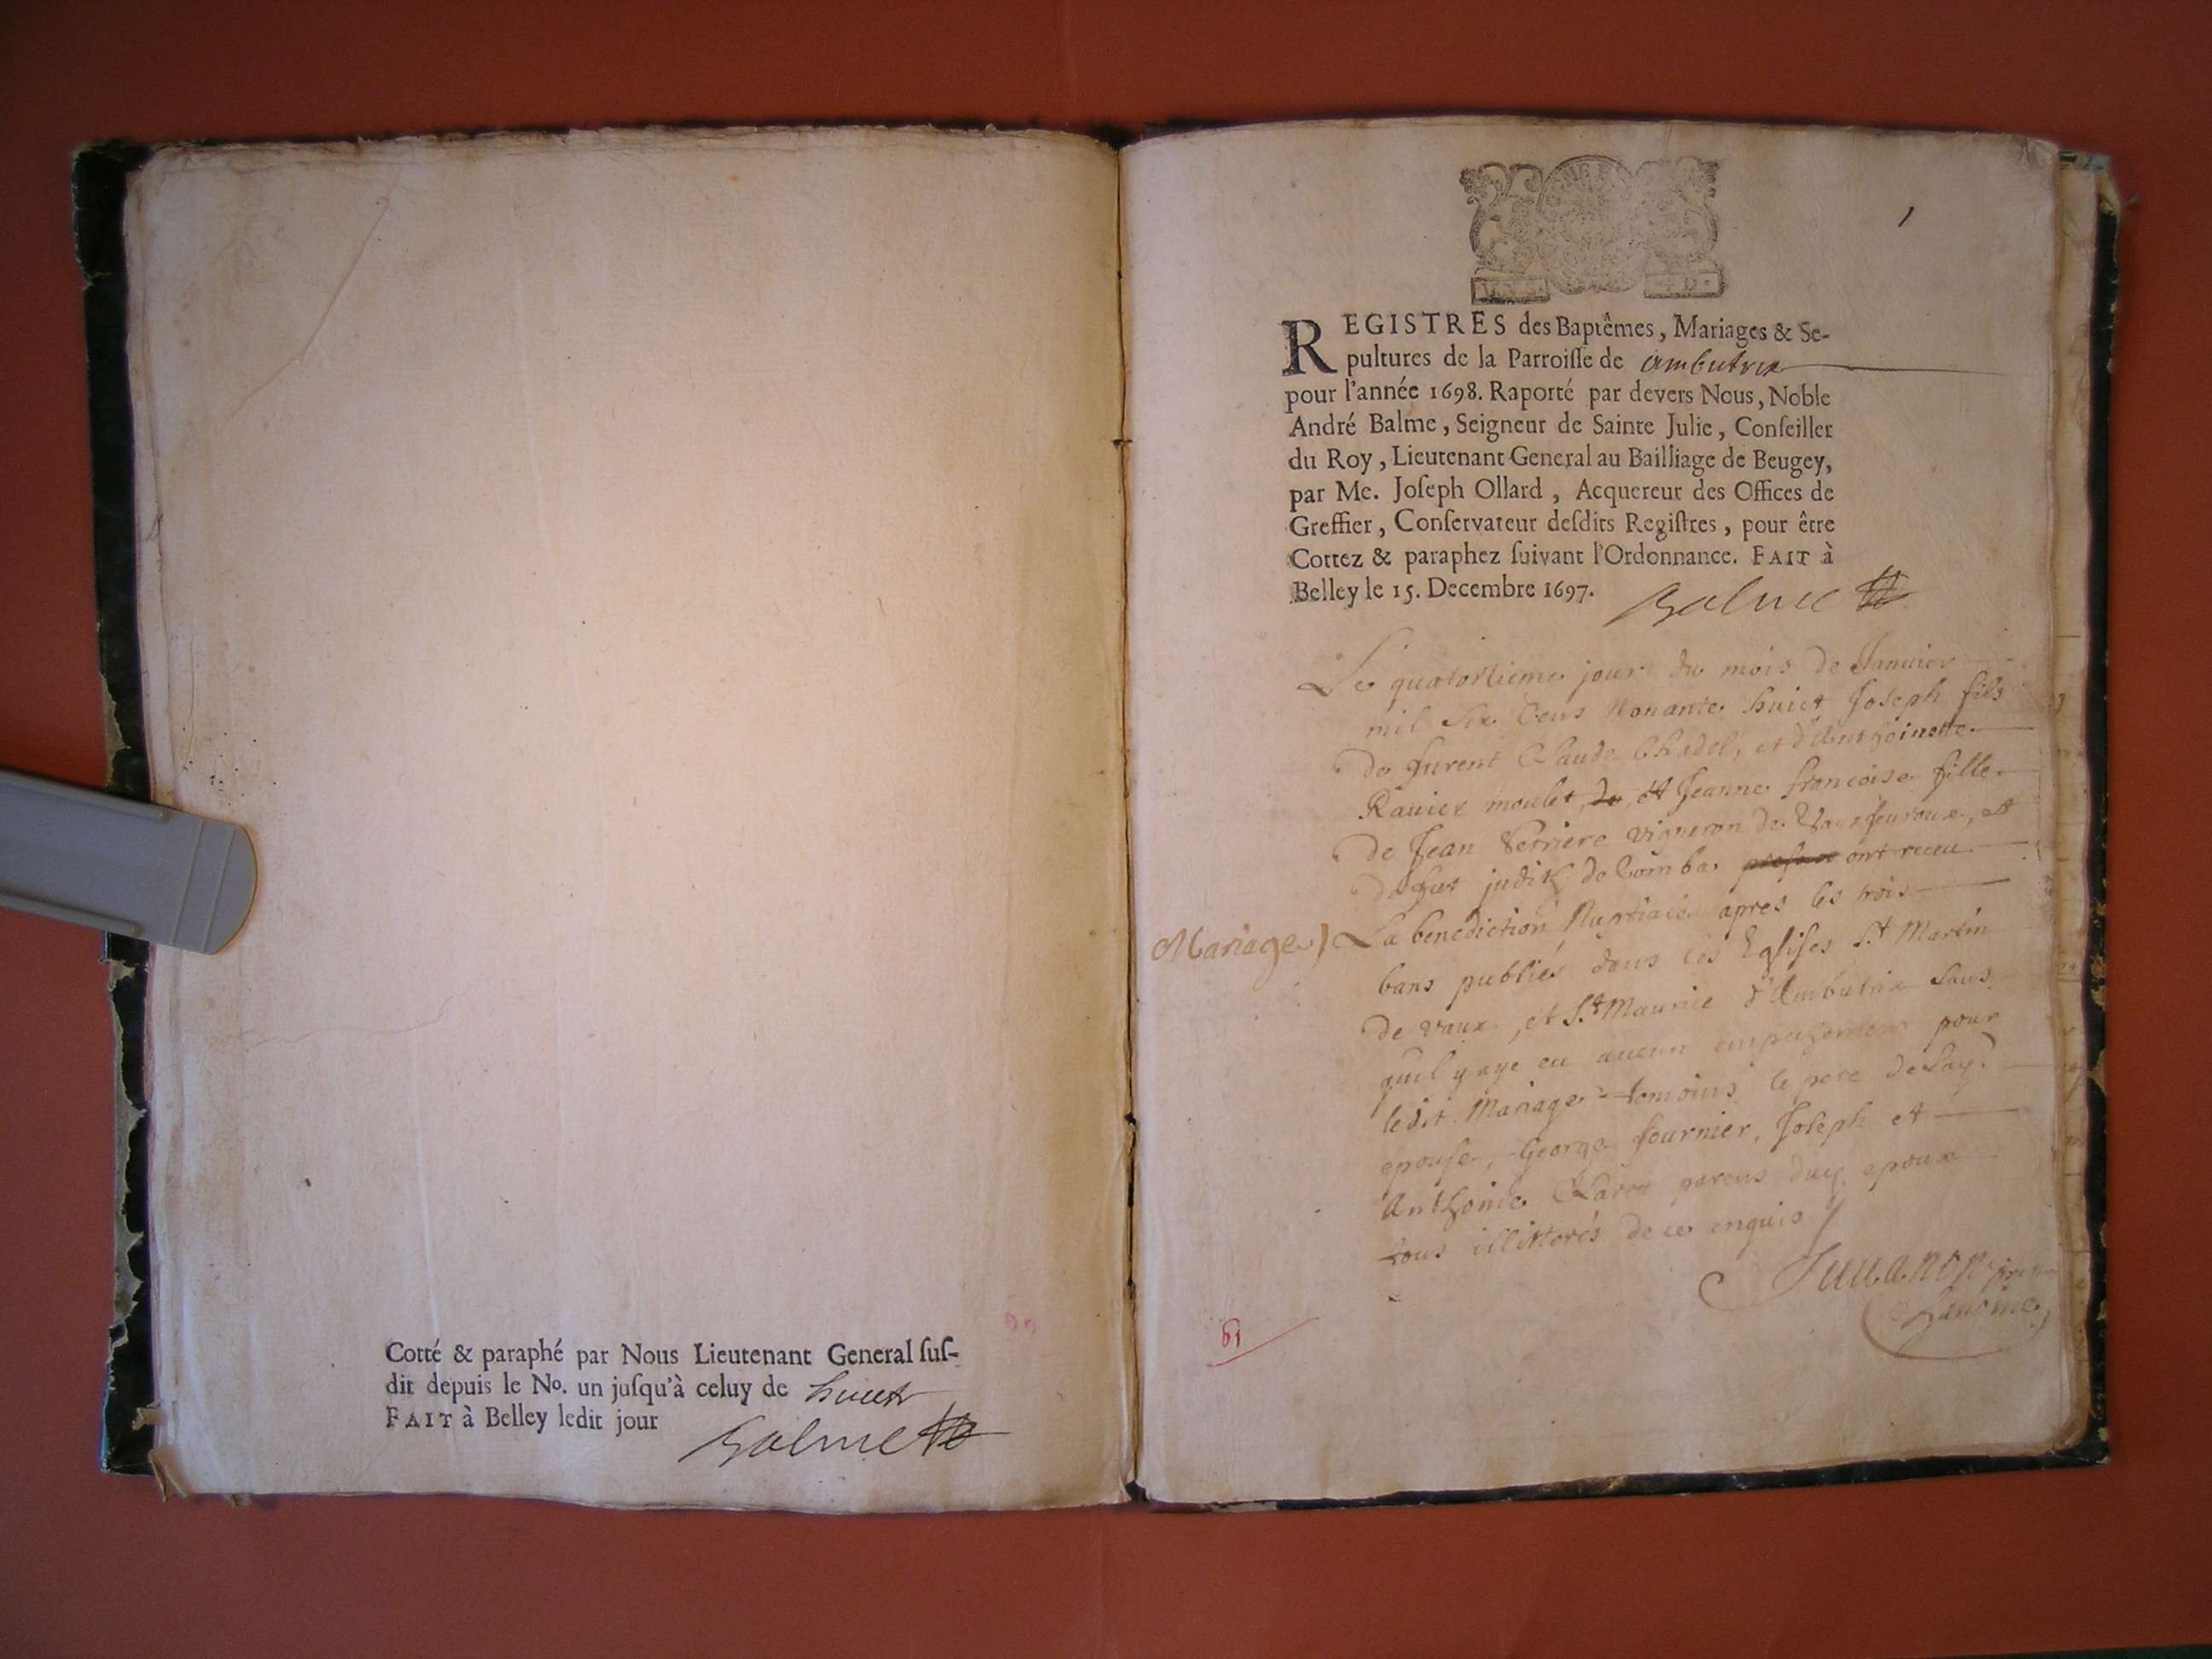 Cotté & paraphé par Nous Lieutenant General suſ-
dit depuis le No. un juſqu'à celuy de huict
FAIT à Belley ledit jour
Balme
1
REGISTRES des Baptêmes, Mariages & Se-
pultures de la Parroiſſe de ambutrix
pour l'année 1698. Raporté par devers Nous, Noble
André Balme, Seigneur de Sainte Julie, Conſeiller
du Roy, Lieutenant General au Bailliage de Beugey,
par Me. Joſeph Ollard, Acquereur des Offices de
Greffier, Conſervateur deſdits Regiſtres, pour être
Cottez & paraphez ſuivant l'Ordonnance. FAIT à
Belley le 15. Decembre 1697.
Balme
Le quatorzieme jour du mois de Januier
mil six cens nonante huict Joseph fils
de Claude Chadel, et d'Anthoinette
moulet, et Jeanne francoise fille
de Jean Verriere vigneron de et
de judith de Comba ont receu
Mariage) La benediction Nuptiale apres les trois
bans publiés dans les Eglises St Martin
de vaux, et St Maurice d'Ambutrix sans
quil y aye eu aucun empechement pour
ledit Mariage temoins le pere de lad.
epouse, George fournier, Joseph et
Anthoine parens dud. epoux
tous illitterés de ce enquis
61